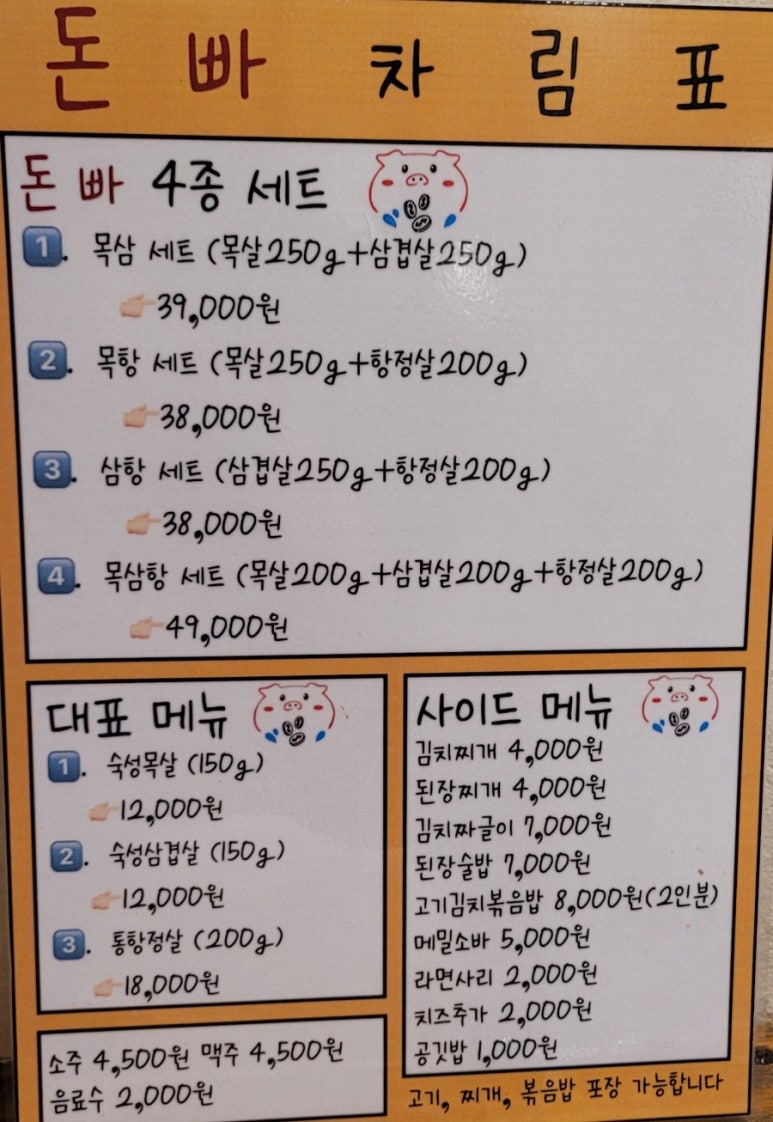 돈빠 차림표
돈빠 4종 세트
1. 목삼 세트 (목살250g+삼겹살250g)
39,000원
2. 목항 세트 (목살250g+항정살200g)
38,000원
3. 삼항 세트 (삼겹살250g+항정살200g)
38,000원
4. 목삼항 세트 (목살200g+삼겹살200g+항정살200g)
49,000원
대표 메뉴
1. 숙성목살 (150g)
12,000원
2. 숙성삼겹살 (150g)
12,000원
3. 통항정살 (200g)
18,000원
소주 4,500원 맥주 4,500원
음료수 2,000원
사이드 메뉴
김치찌개 4,000원
된장찌개 4,000원
김치짜글이 7,000원
된장술밥 7,000원
고기김치볶음밥 8,000원(2인분)
메밀소바 5,000원
라면사리 2,000원
치즈추가 2,000원
공깃밥 1,000원
고기, 찌개, 볶음밥 포장 가능합니다